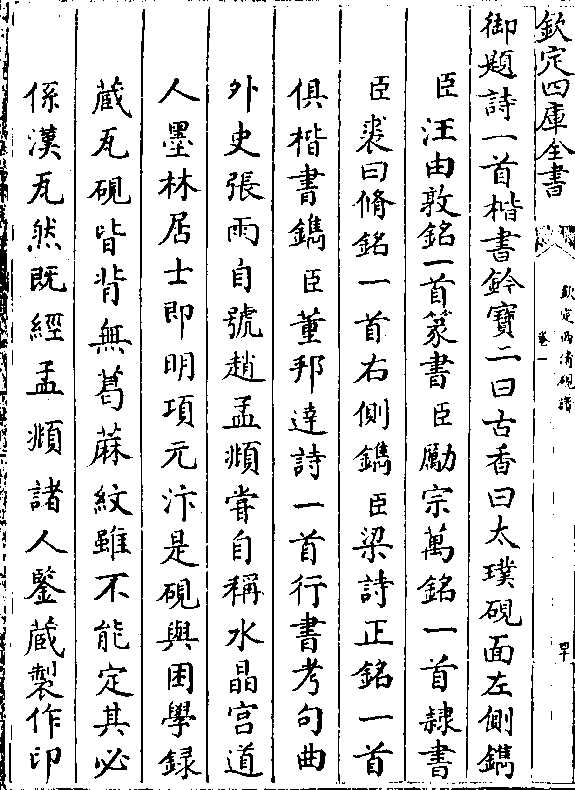 欽定四庫全書
欽定西清硯譜
卷一
御題詩一首楷書鈐寶二曰古香曰太璞硯面左側鐫
臣汪由敦銘一首篆書臣勵宗萬銘一首隸書
臣裘曰脩銘一首右側鐫臣梁詩正銘一首
俱楷書鐫臣董邦達詩一首行書考句曲
外史張雨自號趙孟頫嘗自稱水晶宮道
人墨林居士即明項元汴是硯與困學錄
藏瓦硯皆背無葛蔴紋雖不能定其必
係漢瓦然既經孟頫諸人鑒藏製作印